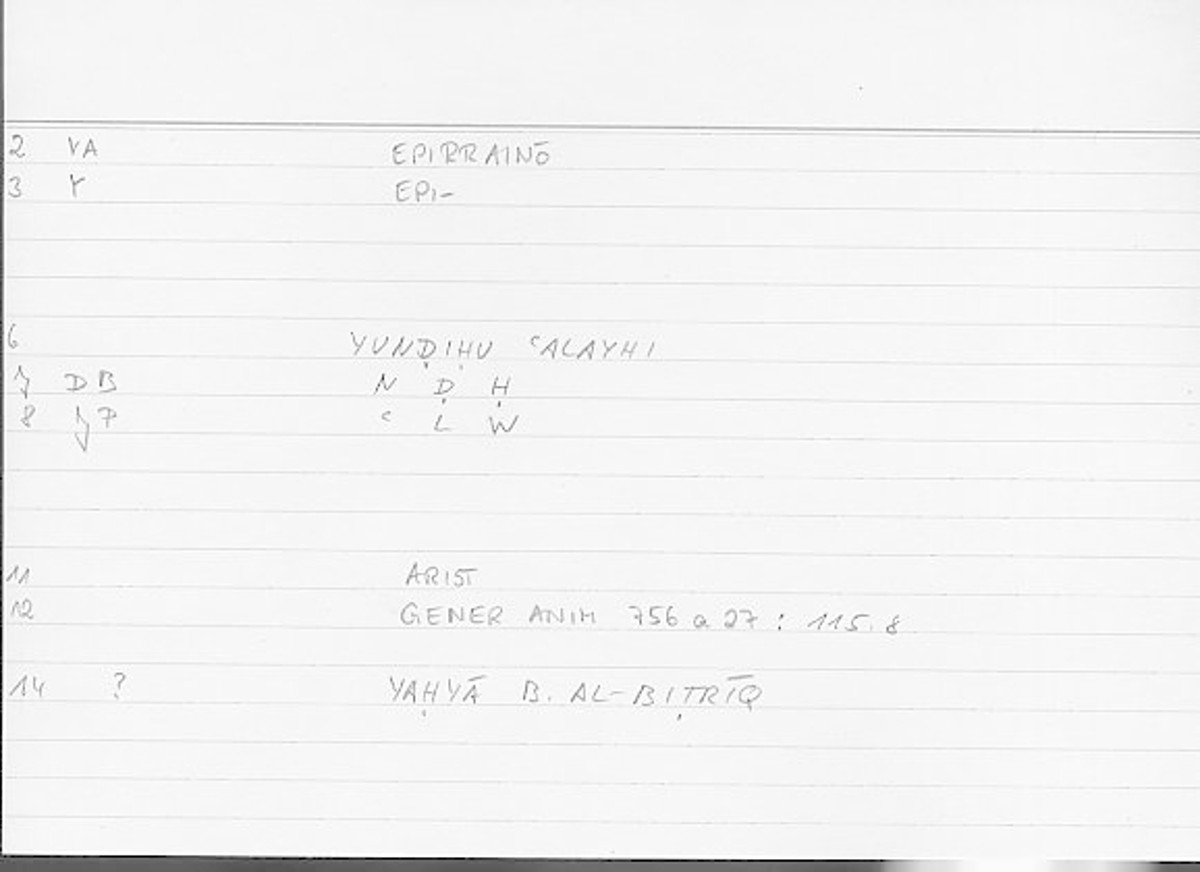 2 VA EPIRRAINŌ
3 Y EPI-
6 YUNḌIḤU ʿALAYHI
7 DB N Ḍ Ḥ
8 P ʿ L W
11 ARIST
12 GENER ANIM 756 a 27 : 115.8
14 ? YAḤYĀ B. AL-BIṬRĪQ